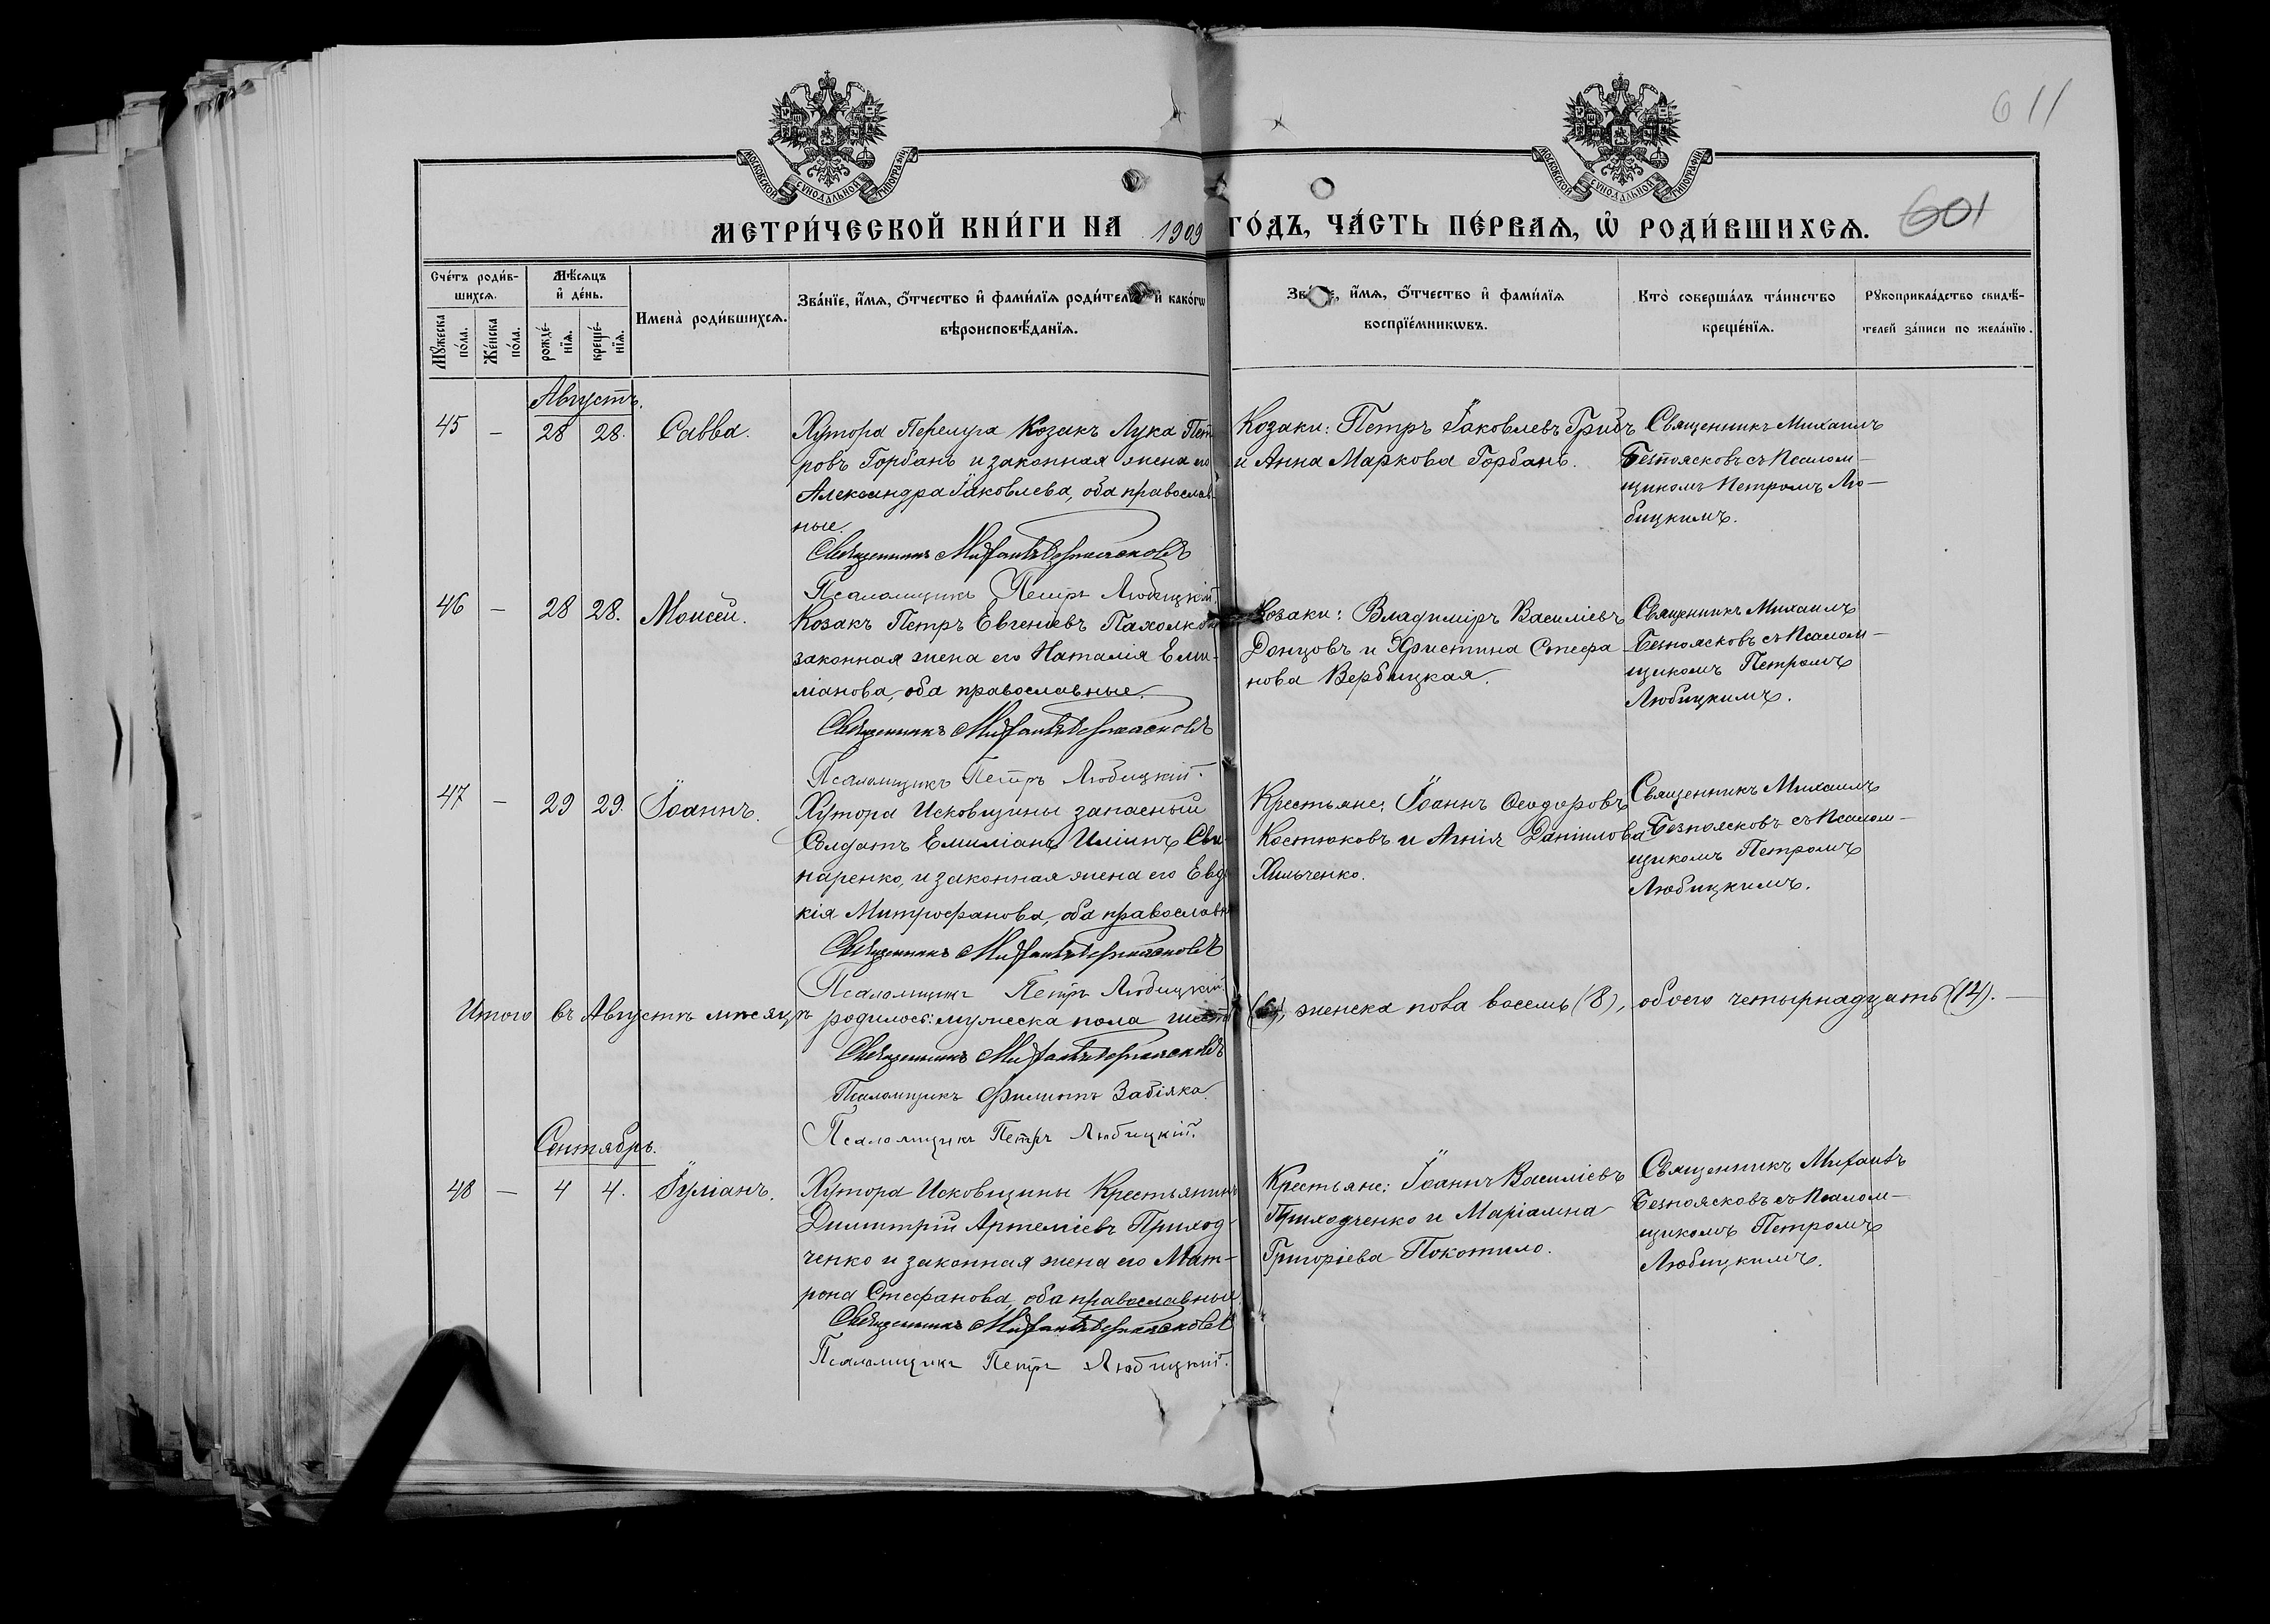 611
МОСКОВСКОЙ СѴНОДАЛЬНОЙ ТИПОГРАФІИ
МОСКОВСКОЙ СѴНОДАЛЬНОЙ ТИПОГРАФІИ
МЕТРИ́ЧЕСКОЙ КНИ́ГИ НА 1909 ГО́ДЪ, ЧА́СТЬ ПЕ́РВАѦ, Ѡ҆ РОДИ́ВШИХСѦ.
601
Сче́тъ роди́в-
шихсѧ.
Мꙋ́жеска
по́ла.
Же́нска
по́ла.
Мѣ́сѧцъ
и҆ де́нь.
рожде́-
нїѧ.
креще́-
нїѧ.
Имена̀ роди́вшихсѧ.
Зва́нїе, и҆́мѧ, ѻ҆́тчество и҆ фами́лїѧ роди́тел и҆ како́гѡ
вѣроисповѣ́данїѧ.
Зв е, и҆́мѧ, ѻ҆́тчество и҆ фами́лїѧ
воспрїе́мникѡвъ.
Кто̀ соверша́лъ та́инство
креще́нїѧ.
Рꙋкоприкла́дство свидѣ́-
телей за́писи по жела́нїю.
Августъ.
45 — 28 28. Савва.
Хутора Перелуга Козакъ Лука Пет
ровъ Горбань и законная жена его
Александра Іаковлева, оба православ-
ные.
Священникъ Михаилъ Безпоясковъ
Псаломщикъ Петръ Любицкій.
Козаки: Петръ Іаковлевъ Грибъ
и Анна Маркова Горбань.
Священникъ Михаилъ
Безпоясковъ съ Псалом-
щикомъ Петромъ Лю-
бицкимъ.
46 — 28 28. Моисей.
Козакъ Петръ Евгеніевъ Пахолко
законная жена его Наталія Еми-
ліанова, оба православные.
Священникъ Михаилъ Безпоясковъ
Псаломщикъ Петръ Любицкій.
Козаки: Владиміръ Василіевъ
Донцовъ и Христина Стефа-
нова Вербицкая.
Священникъ Михаилъ
Безпоясковъ съ Псалом-
щикомъ Петромъ
Любицкимъ.
47 — 29 29. Іоаннъ.
Хутора Исковщины запасный
Солдатъ Емиліанъ Иліинъ Сви
наренко, и законная жена его Евдо
кія Митрофанова, оба православн
Священникъ Михаилъ Безпоясковъ
Псаломщикъ Петръ Любицкій.
Крестьяне: Іоаннъ Ѳеодоровъ
Костюковъ и Агнія Даніилова
Хильченко.
Священникъ Михаилъ
Безпоясковъ съ Псалом-
щикомъ Петромъ
Любицкимъ.
Итого въ Августѣ мѣсяцѣ родилось: мужеска пола шесть (6), женска пола восемь (8), обоего четырнадцать (14). —
Священникъ Михаилъ Безпоясковъ
Псаломщикъ Филиппъ Забіяка.
Псаломщикъ Петръ Любицкій.
Сентябрь.
48 — 4 4. Іуліанъ.
Хутора Исковщины Крестьянинъ
Димитрій Артеміевъ Приход-
ченко и законная жена его Мат-
рона Стефанова, оба православные
Священникъ Михаилъ Безпоясковъ
Псаломщикъ Петръ Любицкій.
Крестьяне: Іоаннъ Василіевъ
Приходченко и Маріамна
Григоріева Покотило.
Священникъ Михаилъ
Безпоясковъ съ Псалом-
щикомъ Петромъ
Любицкимъ.